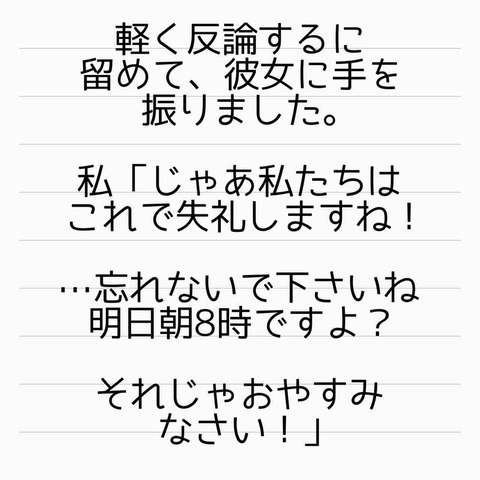 軽く反論するに
留めて、彼女に手を
振りました。
私「じゃあ私たちは
これで失礼しますね！
…忘れないで下さいね
明日朝8時ですよ？
それじゃおやすみ
なさい！」